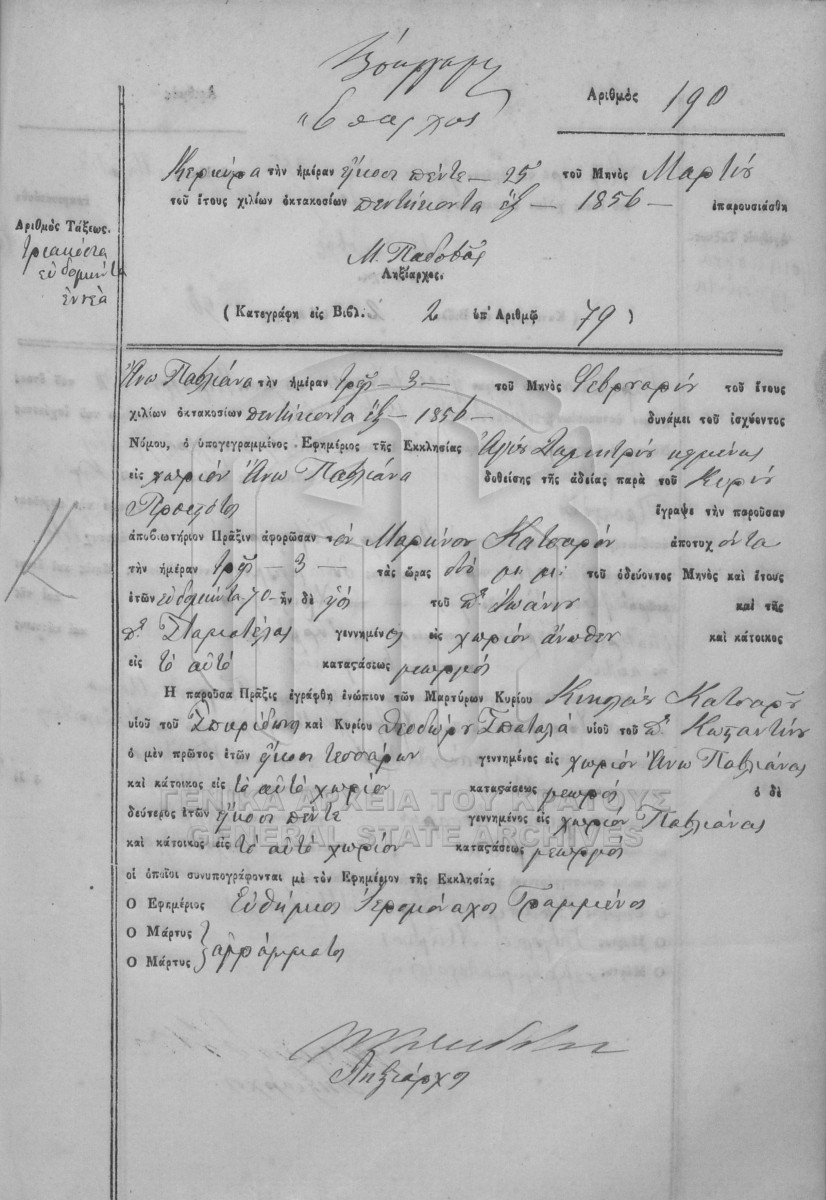 Ἔπαρχος
Ἀριθμὸς 190
Κερκύρα τὴν ἡμέραν ἤκοσι πέντε — 25 τοῦ Μηνὸς Μαρτίου
τοῦ ἔτους χιλίων ὀκτακοσίων πεντήκοντα ἕξ — 1856 — ἐπαρουσιάσθη
Ἀριθμὸς Τάξεως.
τριακόσια
ευδομήντα
ἐννεά
Μ. Παδοβᾶς
Ληξίαρχος.
( Κατεγράφη εἰς Βιβλ. 2 ὑπ' Ἀριθμῷ 79 )
Ἄνω Παβλιάνα τὴν ἡμέραν τρεῖς — 3 — τοῦ Μηνὸς Φεβρουαρίου τοῦ ἔτους
χιλίων ὀκτακοσίων πεντήκοντα ἕξ — 1856 — δυνάμει τοῦ ἰσχύοντος
Νόμου, ὁ ὑπογεγραμμένος Ἐφημέριος τῆς Ἐκκλησίας Ἁγίου Δημητρίου κημένας
εἰς χωρίον Ἄνω Παβλιάνα δοθείσης τῆς ἀδείας παρὰ τοῦ Κυρίου
Προεστότος ἔγραψε τὴν παροῦσαν
ἀποβιωτήριον Πρᾶξιν ἀφορῶσαν τὸν Μαρκίνον Κατσαρόν ἀποτυχόντα
τὴν ἡμέραν τρεῖς — 3 — τὰς ὥρας στὸ τοῦ ὁδεύοντος Μηνὸς καὶ ἔτους
ἐτῶν ευδομήντα 70 ἦν δὲ υἱός τοῦ π. Ἰωάννου καὶ τῆς
π. Σταματέλας γεννημένος εἰς χωρίον ἄνωθεν καὶ κάτοικος
εἰς τὸ αὐτό καταστάσεως γεωργός
Ἡ παροῦσα Πρᾶξις ἐγράφθη ἐνώπιον τῶν Μαρτύρων Κυρίου Νικολάου Κατσαροῦ
υἱοῦ τοῦ Σπυρίδωνος καὶ Κυρίου Θεοδώρου Σπαταλά υἱοῦ τοῦ π. Κωσταντίνου
ὁ μὲν πρῶτος ἐτῶν ἤκοσι τεσσάρων γεννημένος εἰς χωρίον Ἄνω Παβλιάνας
καὶ κάτοικος εἰς τὸ αὐτό χωρίον καταστάσεως γεωργός ὁ δὲ
δεύτερος ἐτῶν ἤκοσι πέντε γεννημένος εἰς χωρίον Παβλιάνας
καὶ κάτοικος εἰς τὸ αὐτό χωρίον καταστάσεως γεωργός
οἱ ὁποῖοι συνυπογράφονται μὲ τὸν Ἐφημέριον τῆς Ἐκκλησίας
Ὁ Ἐφημέριος Εὐθήμιος Ἱερομόναχος Γραμμένος
Ὁ Μάρτυς
Ὁ Μάρτυς ἀγράμματοι
Ληξίαρχος
ΓΕΝΙΚΑ ΑΡΧΕΙΑ ΤΟΥ ΚΡΑΤΟΥΣ
GENERAL STATE ARCHIVES